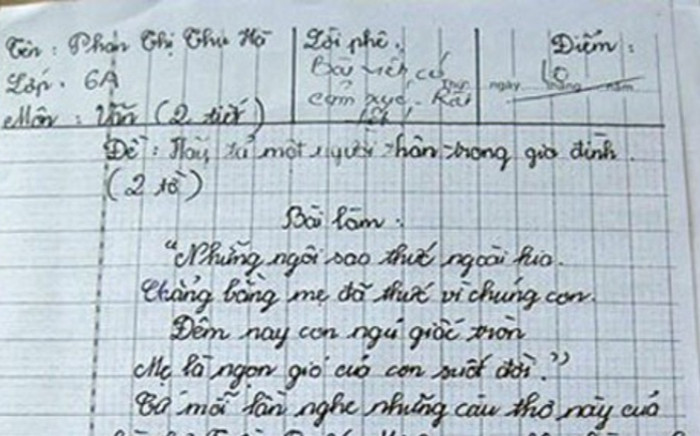 Tên : Phan Thị Thu Hà
Lớp : 6A
Môn : Văn (2 tiết)
Lời phê :
Bài viết có
cảm xúc. Rất
tốt!
Điểm :
10
Thứ ngày tháng năm
Đề : Hãy tả một người thân trong gia đình.
(2 tờ)
Bài làm :
"Những ngôi sao thức ngoài kia
Chẳng bằng mẹ đã thức vì chúng con.
Đêm nay con ngủ giấc tròn
Mẹ là ngọn gió của con suốt đời."
Cứ mỗi lần nghe những câu thơ này của